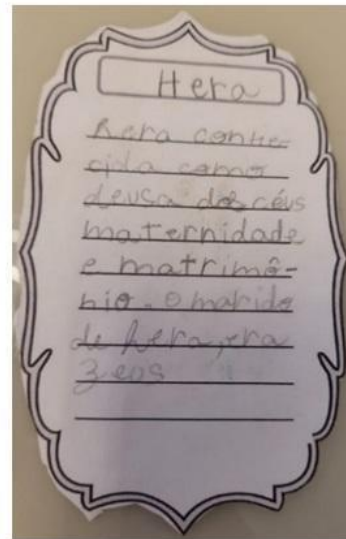 Hera
hera conhe-
cida como
deusa dos céus
maternidade
e matrimô-
nio. O marido
de hera, era
Zeos